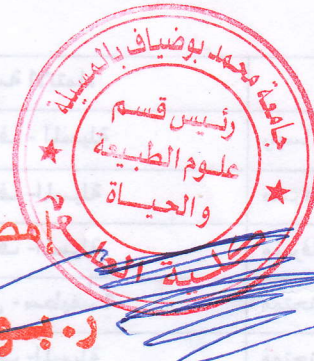 جامعة محمد بوضياف بالمسيلة
رئيس قسم
علوم الطبيعة
والحياة
كلية العلوم